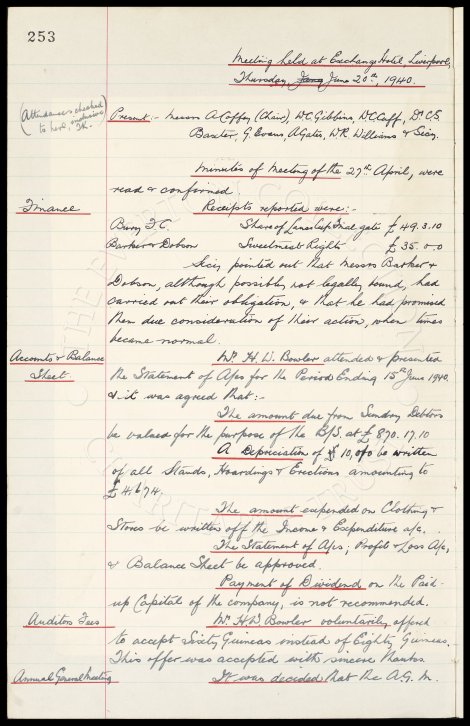 253
Meeting held at Exchange Hotel, Liverpool,
Thursday, June 20th, 1940.
(Attendances checked
to here, inclusive,
Present :- Messrs A Coffey (Chair), W.C. Gibbins, W.C. Cuff, Dr C.S.
Baxter, G. Evans, A Gates, W.R. Williams & Secy.
Minutes of Meeting of the 27th April, were
read & confirmed
Finance
Receipts reported were:-
Bury F.C. Share of Lancs Cup Final gate £49.3.10
Barker & Dobson Sweetmeat Rights £35.0.0
Secy pointed out that Messrs Barker &
Dobson, although possibly not legally bound, had
carried out their obligation, & that he had promised
them due consideration of their action, when times
became normal.
Accounts & Balance
Sheet.
Mr H. W. Bowler attended & presented
the Statement of A/cs for the Period Ending 15th June 1940.
& it was agreed that:-
The amount due from Sundry Debtors
be valued for the purpose of the B/S. at £870.17.10
A Depreciation of 10% be written
of all Stands, Hoardings & Erections amounting to
£4674.
The amount expended on Clothing &
Stores be written off the Income & Expenditure a/c.
The Statement of A/cs; Profit & Loss A/c,
& Balance Sheet be approved.
Payment of Dividend on the Paid-
up Capital of the company, is not recommended.
Auditors Fees
Mr H W Bowler voluntarily offered
to accept Sixty Guineas instead of Eighty Guineas.-
This offer was accepted with sincere thanks.
Annual General Meeting
It was decided that the A.G.M.